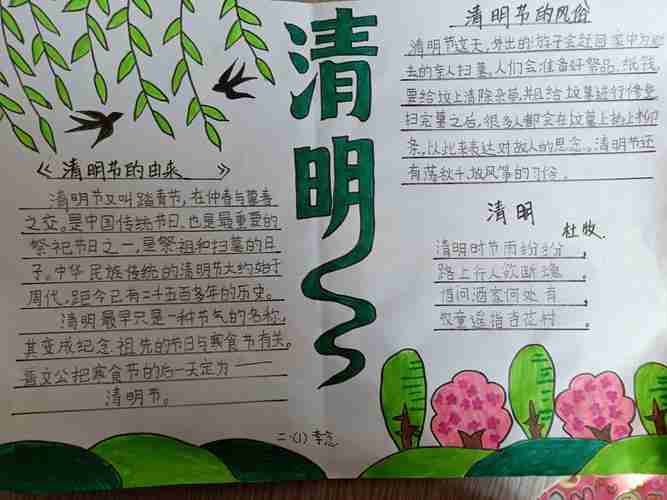 清明
《清明节的由来》
清明节又叫踏青节，在仲春与暮春
之交。是中国传统节日，也是最重要的
祭祀节日之一，是祭祖和扫墓的日
子。中华民族传统的清明节大约始于
周代，距今已有二千五百多年的历史。
清明最早只是一种节气的名称，
其变成纪念祖先的节日与寒食节有关。
晋文公把寒食节的后一天定为——
清明节。
清明节的风俗
清明节这天，外出的游子会赶回家中为
去的亲人扫墓，人们会准备好祭品、纸钱，
要给坟上清除杂草，并且给坟墓进行修整。
扫完墓之后，很多人都会在坟墓上插上柳
条，以此来表达对故人的思念。清明节还
有荡秋千、放风筝的习俗。
清明
杜牧
清明时节雨纷纷，
路上行人欲断魂。
借问酒家何处有，
牧童遥指杏花村。
二·(1) 李念